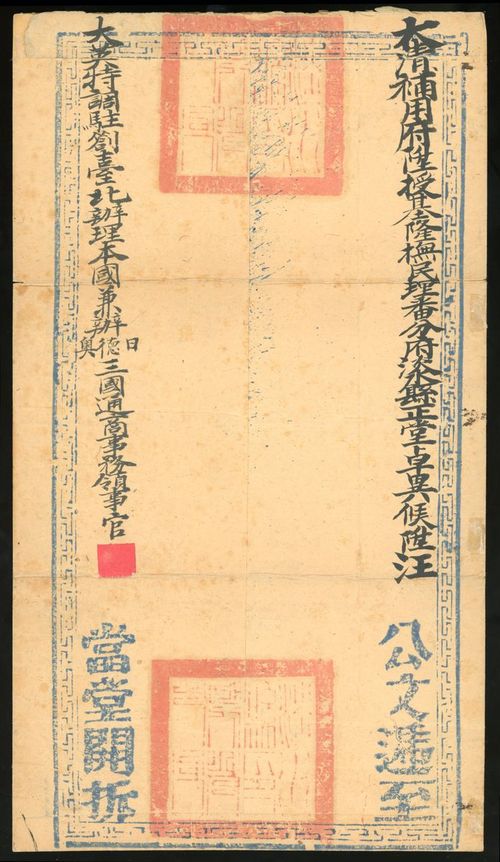 大清補用府陞授基隆撫民理番分府淡水縣正堂卓異候陞汪
公文遞至
大英特調駐劄臺北辦理本國兼辦日德奧三國通商事務領事官
當堂開拆